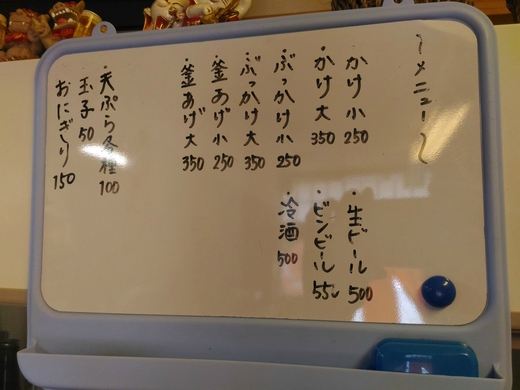 〜メニュー〜
かけ小 250
・かけ大 350
・ぶっかけ小 250
・ぶっかけ大 350
・釜あげ小 250
・釜あげ大 350
・天ぷら各種 100
玉子 50
おにぎり 150
・生ビール 500
・ビンビール 550
・冷酒 500